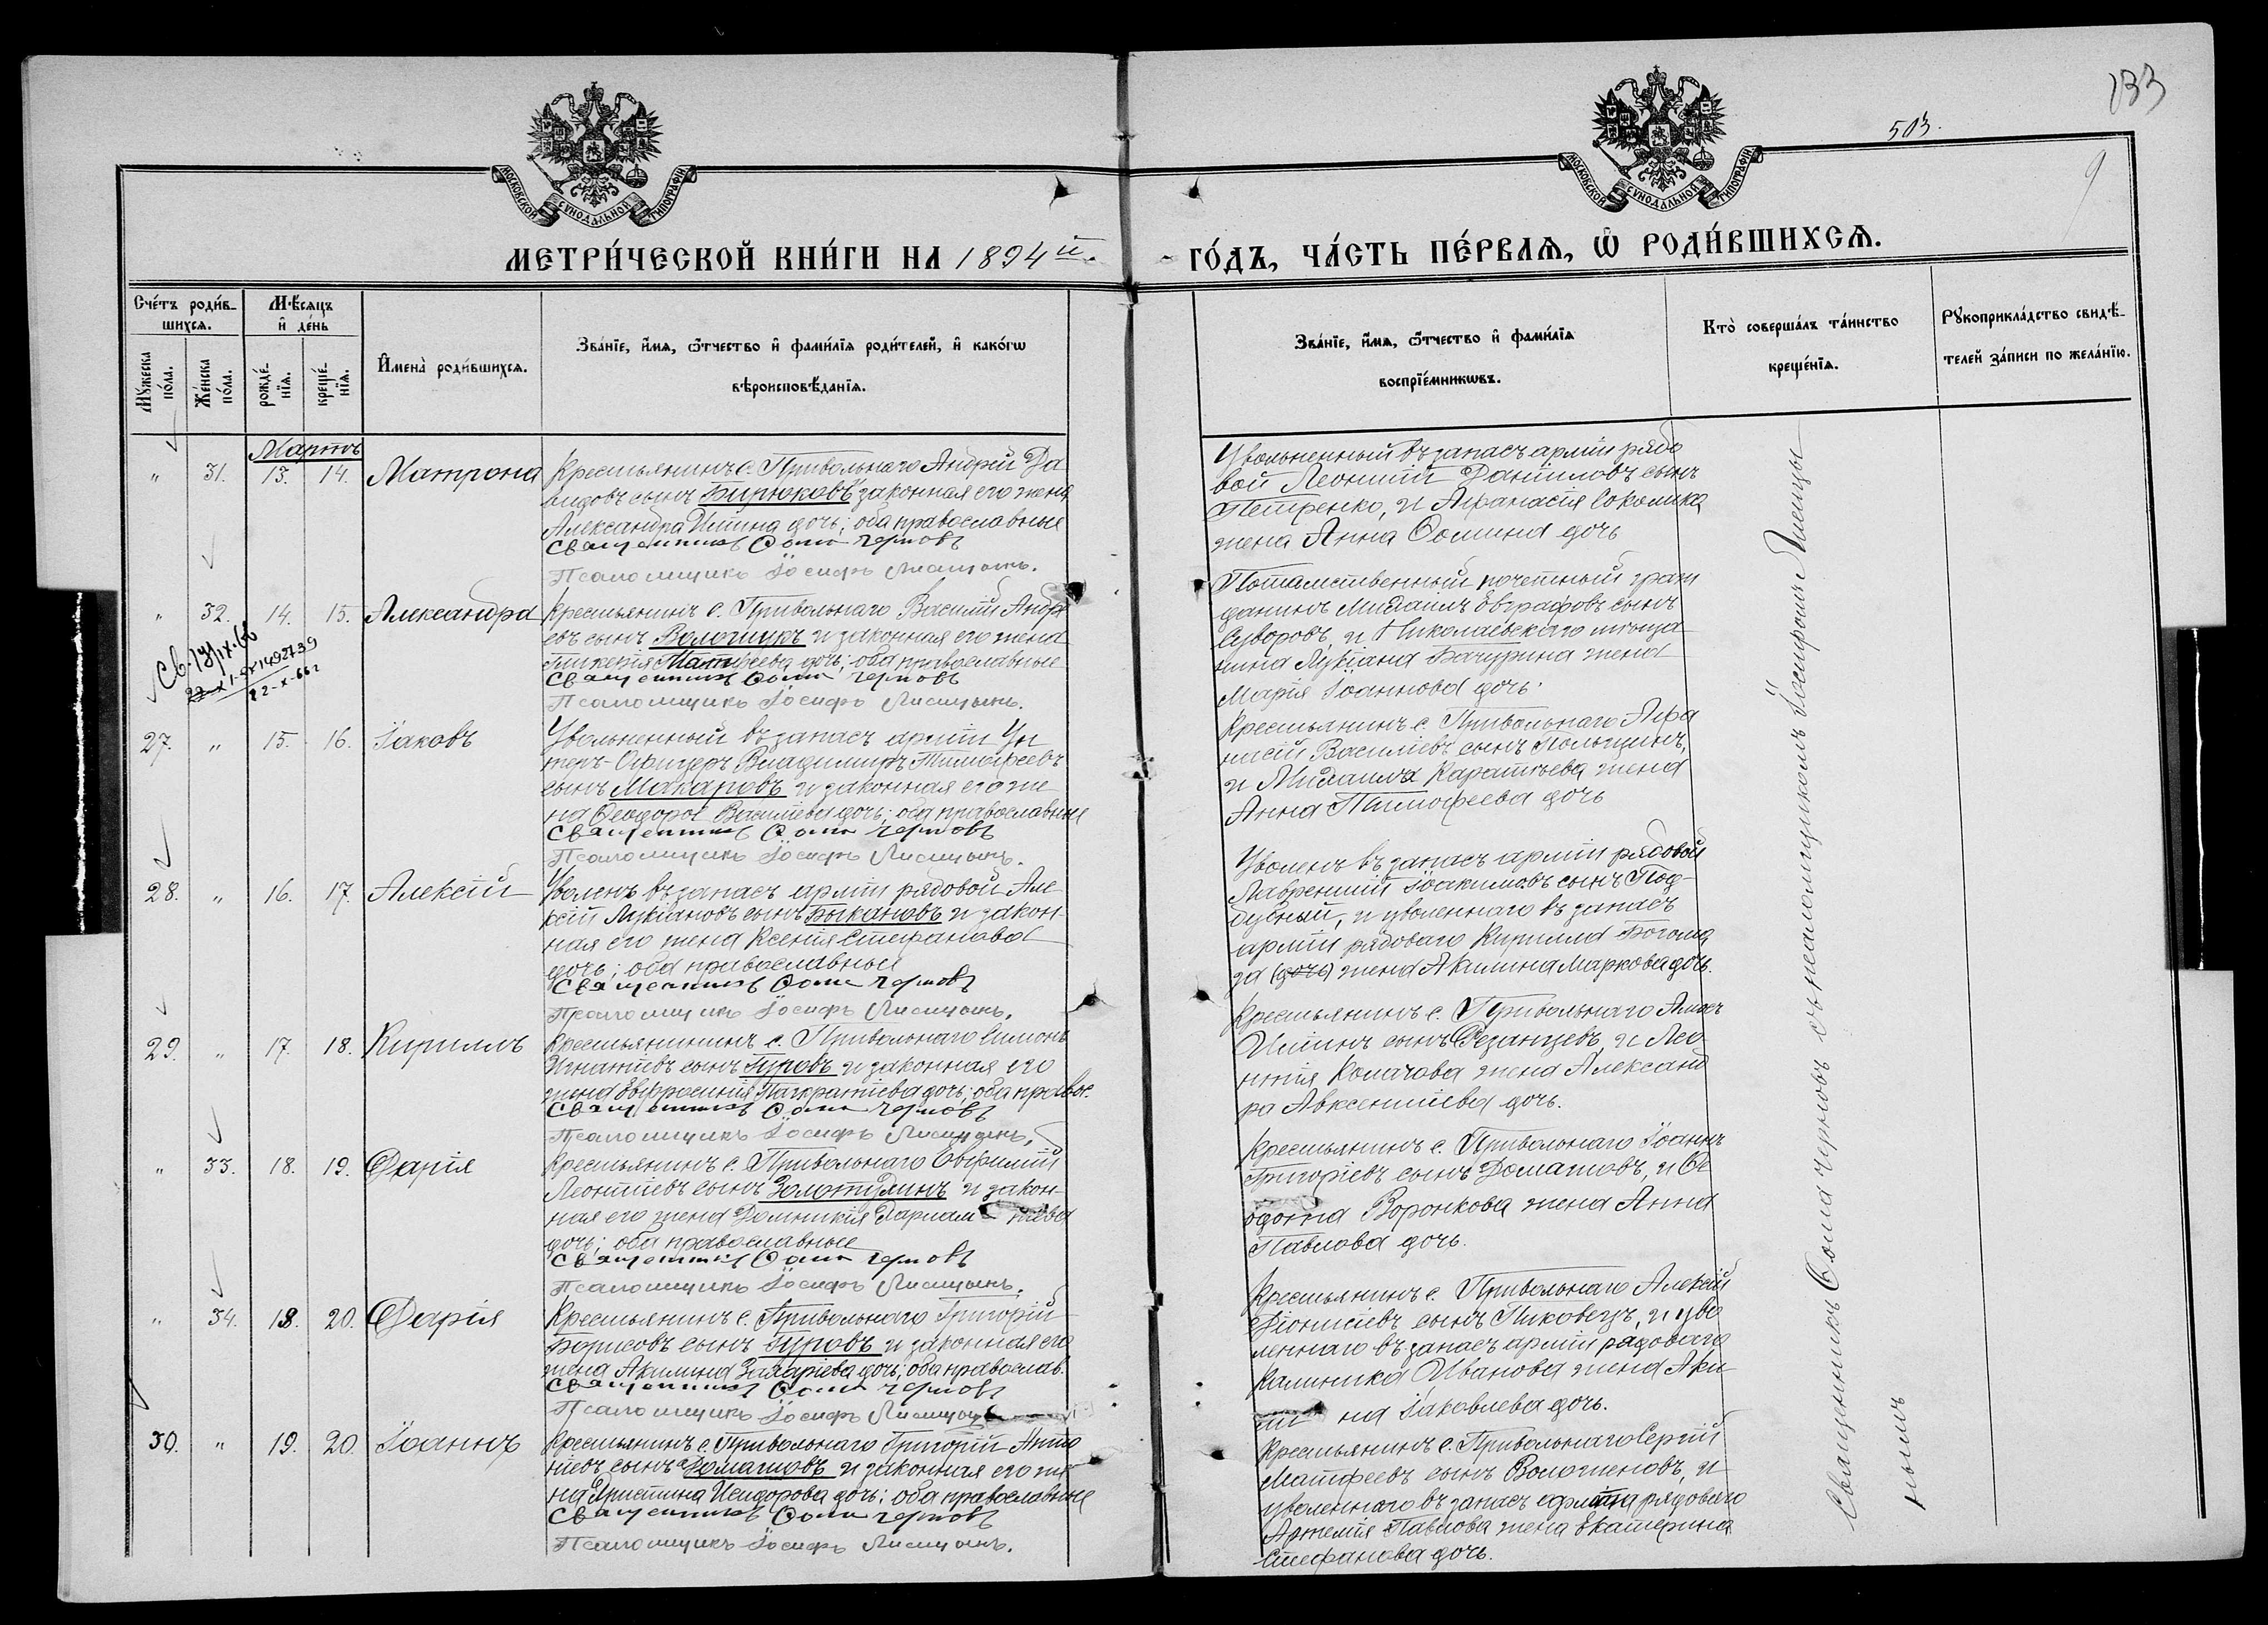 133
503.
9
МОСКОВСКОЙ СѴНОДАЛЬНОЙ ТИПОГРАФІИ
МОСКОВСКОЙ СѴНОДАЛЬНОЙ ТИПОГРАФІИ
МЕТРИ́ЧЕСКОЙ КНИ́ГИ НА 1894й
ГО́ДЪ, ЧА́СТЬ ПЕ́РВАѦ, Ѽ РОДИ́ВШИХСѦ.
Сче́тъ роди́в-
шихсѧ.
Мꙋ́жеска по́ла.
Же́нска по́ла.
Мѣ́сѧцъ
и҆ де́нь
рожде́-
нїѧ.
креще́-
нїѧ.
И҆мена̀ роди́вшихсѧ.
Зва́нїе, и҆́мѧ, ѻ҆́тчество и҆ фами́лїѧ роди́телей, и҆ како́гѡ
вѣроисповѣ́данїѧ.
Зва́нїе, и҆́мѧ, ѻ҆́тчество и҆ фами́лїѧ
воспрїе́мникѡвъ.
Кто̀ соверша́лъ та́инство
креще́нїѧ.
Рꙋкоприкла́дство свидѣ́-
телей за́писи по жела́нїю.
Мартъ
" 31. 13. 14. Матрона Крестьянинъ с. Привольнаго Андрей Да
видовъ сынъ Бирюковъ законная его жена
Александра Иtина дочь; оба православные
Священникъ Ѳома Черновъ
Псаломщикъ Іосифъ Лисицынъ.
Уволненный въ запасъ арміи рядо
вой Леонтій Даніиловъ сынъ
Петренко, и Афанасія Соколика
жена Анна Ѳомина дочь
" 32. 14. 15. Александра Крестьянинъ с. Привольнаго Василій Андре
евъ сынъ Вологиукъ и законная его жена
Гликерія Матфеева дочь; оба православные
Священникъ Ѳома Черновъ
Псаломщикъ Іосифъ Лисицынъ.
22-X-66г
Потомственный почетный граж
данинъ Михаилъ Евграфовъ сынъ
Суворовъ, и Николаевскаго мѣща
нина Лукіана Бачурина жена
Марія Іоаннова дочь.
27. " 15. 16. Іаковъ Уволненный въ запасъ арміи Ун
теръ-Офицеръ Владимиръ Тимофеевъ
сынъ Макаровъ и законная его же
на Ѳеодора Василіева дочь; оба православные
Священникъ Ѳома Черновъ
Псаломщикъ Іосифъ Лисицынъ.
Крестьянинъ с. Привольнаго Афа
насій Василіевъ сынъ Польщинъ,
и Михаила Каратѣева жена
Анна Тимофеева дочь
28. " 16. 17. Алексій Уволенъ въ запасъ арміи рядовой Але
ксій Лукіановъ сынъ Быкановъ и закон-
ная его жена Ксенія Стефанова
дочь; оба православные
Священникъ Ѳома Черновъ
Псаломщикъ Іосифъ Лисицынъ.
Уволенъ въ запасъ арміи рядовой
Лаврентій Іоакимовъ сынъ Под-
дубный, и уволеннаго въ запасъ
арміи рядоваго Кирилла Богома
за (дочь) жена Акилина Маркова дочь.
29. " 17. 18. Кириллъ Крестьянининъ с. Привольнаго Симонъ
Игнатіевъ сынъ Гуровъ и законная его
жена Евфросинія Пагкратіева дочь; оба правос.
Священникъ Ѳома Черновъ
Псаломщикъ Іосифъ Лисицынъ.
Крестьянинъ с. Привольнаго Амосъ
сынъ Рѣзанцевъ, и Лео-
нтія Комачова жена Александ
ра Авксентіева дочь.
" 33. 18. 19. Дарія Крестьянинъ с. Привольнаго Евфимій
Леонтіевъ сынъ Золотухинъ и закон-
ная его жена Домникія
дочь; оба православные
Священникъ Ѳома Черновъ
Псаломщикъ Іосифъ Лисицынъ.
Крестьянинъ с. Привольнаго Іоаннъ
Григоріевъ сынъ Домашовъ, и Ѳе
одота Воронкова жена Анна
Павлова дочь.
" 34. 18. 20. Дарія Крестьянинъ с. Привольнаго Григорій
Борисовъ сынъ Гуровъ и законная его
жена Акилина Захаріева дочь; оба православ.
Священникъ Ѳома Черновъ
Псаломщикъ Іосифъ Лисицынъ
Крестьянинъ с. Привольнаго Алексій
Діонисіевъ сынъ Пиковецъ, и уво
леннаго въ запасъ арміи рядоваго
Калиника Иванова жена Аки
на Іаковлева дочь.
30. " 19. 20. Іоаннъ Крестьянинъ с. Привольнаго Григорій Анто
ніевъ сынъ Домашовъ и законная его же
на Христина Исидорова дочь; оба православные
Священникъ Ѳома Черновъ
Псаломщикъ Іосифъ Лисицынъ.
Крестьянинъ с. Привольнаго Сергій
Матфеевъ сынъ Волошеновъ, и
уволеннаго въ запасъ рядоваго
Артемія Павлова жена Екатерина
Стефанова дочь.
Священникъ Ѳома Черновъ съ псаломщикомъ Іосифомъ Лисицы
нымъ